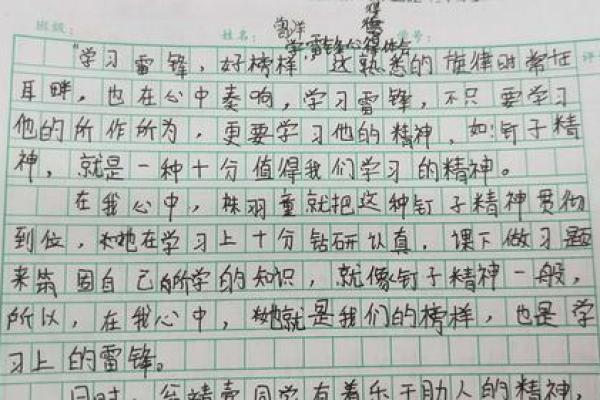 班级： 姓名： 曾洋 学号：
学雷锋心得体会
“学习雷锋，好榜样”这熟悉的旋律时常在
耳畔，也在心中奏响，学习雷锋，不只要学习
他的所作所为，更要学习他的精神，如:钉子精
神，就是一种十分值得我们学习的精神。
在我心中，羽童就把这种钉子精神贯彻
到位，她在学习上十分钻研认真，课下做习题
来巩固自己所学的知识，就像钉子精神一般，
所以，在我心中，她就是我们的榜样，也是学
习上的雷锋。
同时，同学有着乐于助人的精神，